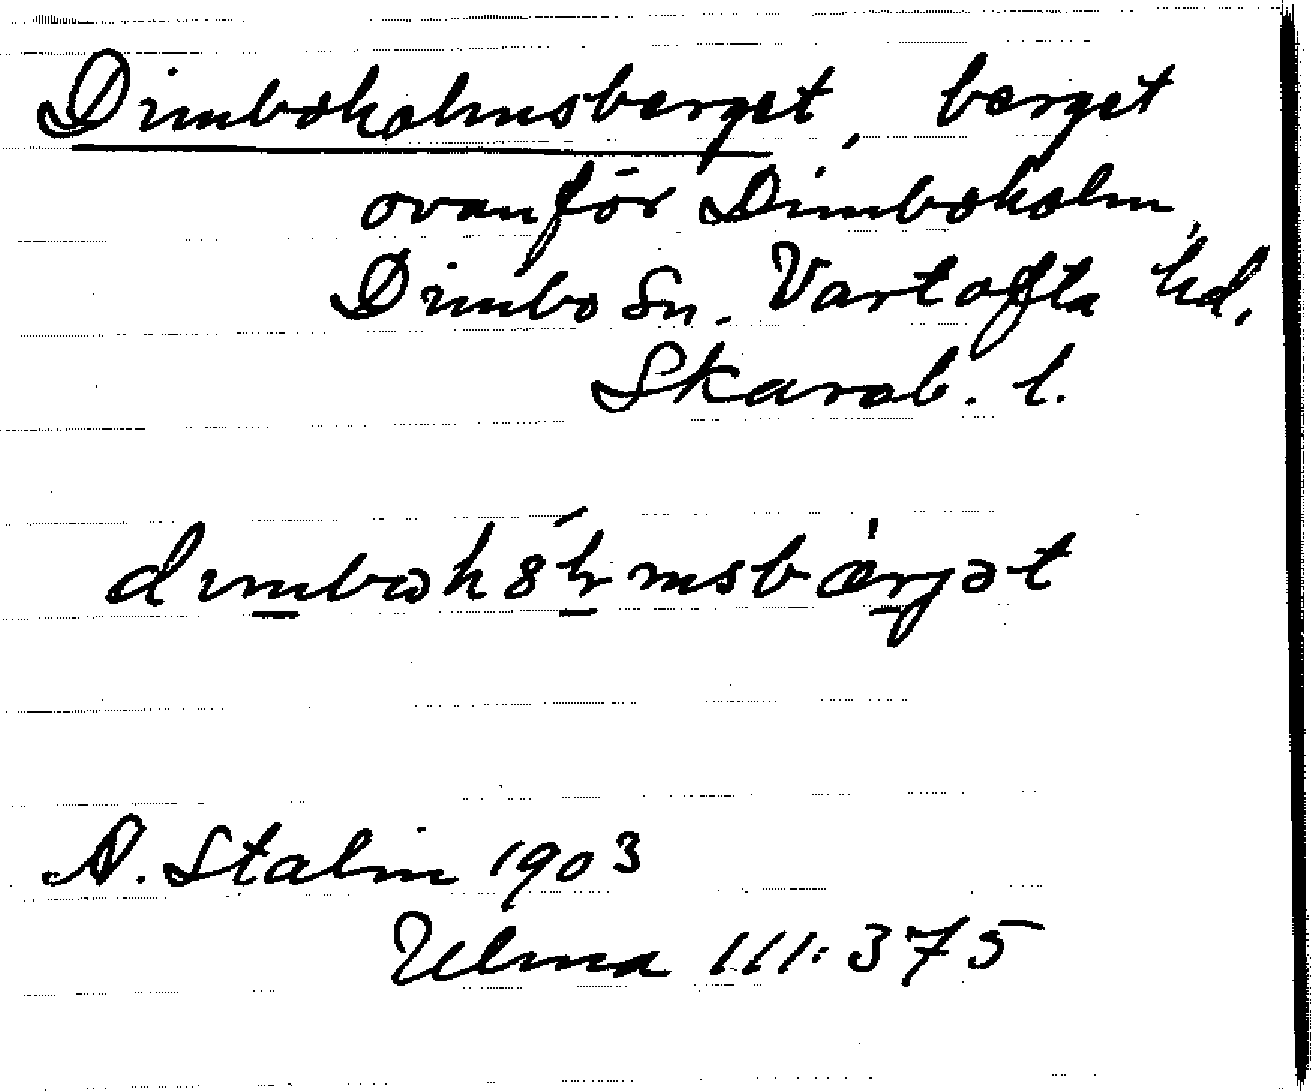 Dimboholmsberget, berget
ovanför Dimboholm,
Dimbo sn. Vartofta hd,
Skarab. l.
A. Stalin 1903
Ulma 111:375